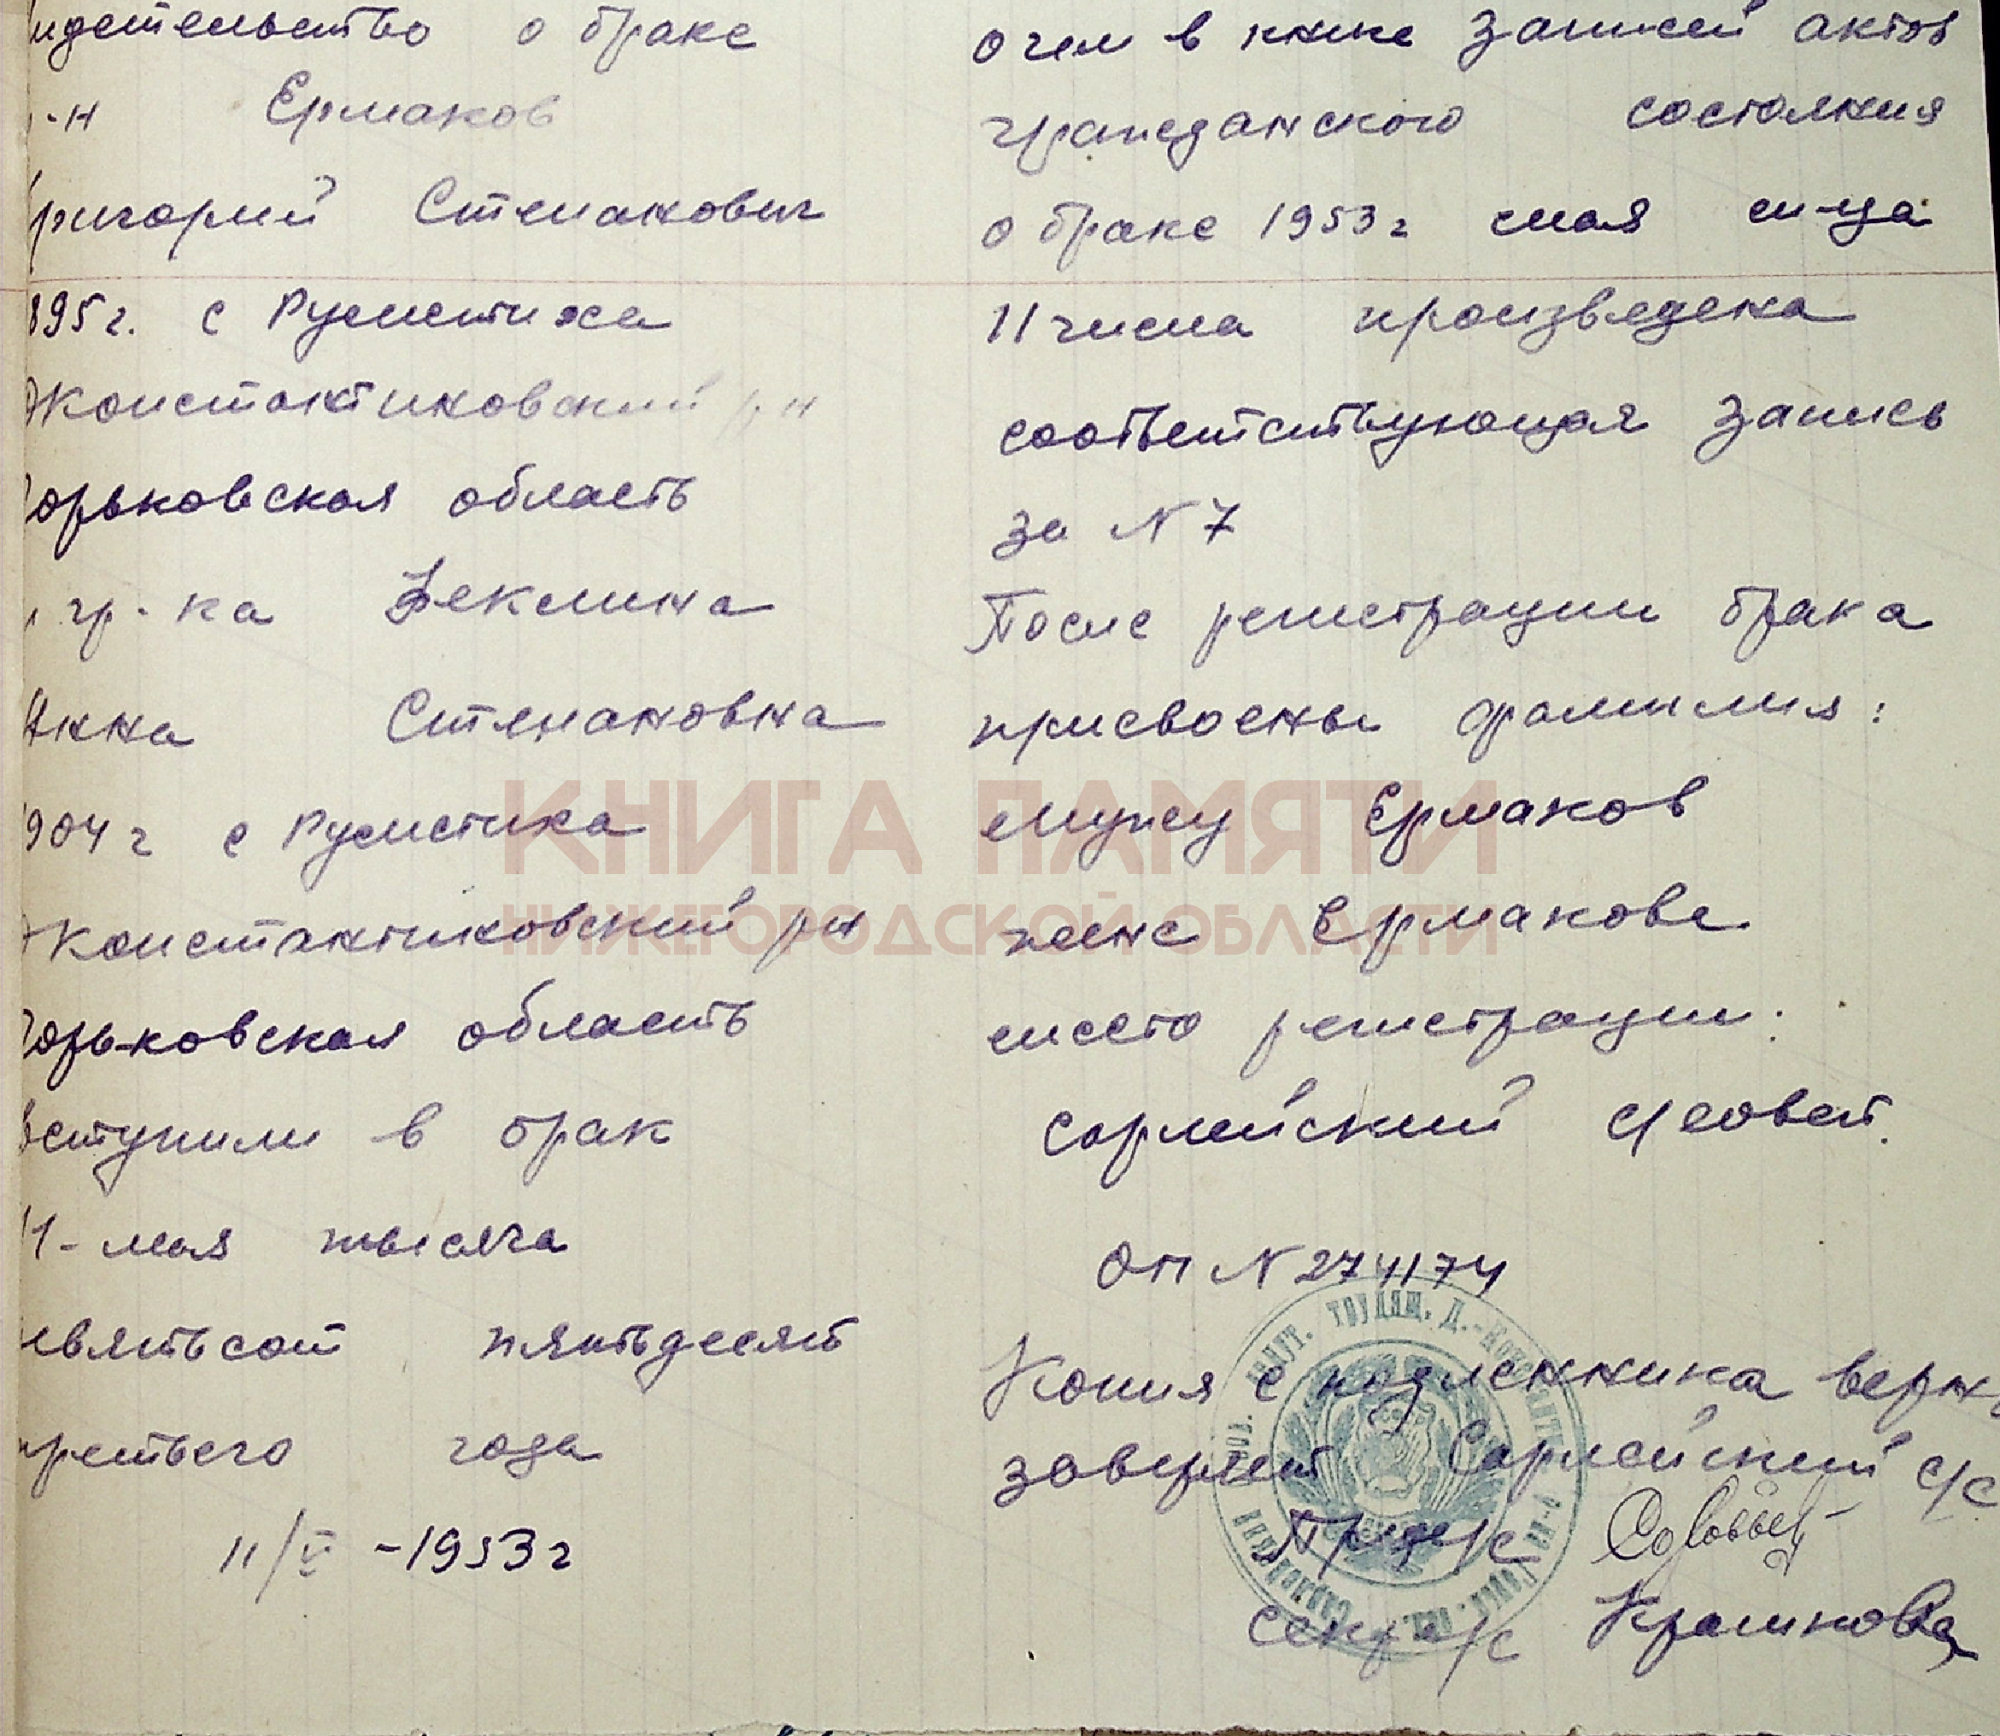 идетельство о браке
р-н Ермаков
григорий Степанович
895 г. с Румстиха
Дконстантиновский рн
Горьковская область
и гр-ка Феклина
Анна Степановна
1904 г с Румстиха
Дконстантиновский рн
Горьковская область
вступили в брак
11- мая тысяча
девятьсот пятьдесят
третьего года
11/V -1953 г
о чем в книке записей актов
гражданского состояния
о браке 1953 г мая м-ца
11 числа произведена
соответствующая запись
за N 7
После регистрации брака
присвоены фамилия:
мужу Ермаков
жене Ермакова
место регистрации:
Сарлейский с/совет.
ОП N 274174
Копия с подленника верна
заверяет Сарлейский с/с
Предс/с Соловьев
секр с/с Крашкова
КНИГА ПАМЯТИ
НИЖЕГОРОДСКОЙ ОБЛАСТИ
ТРУДЯЩ. Д.-